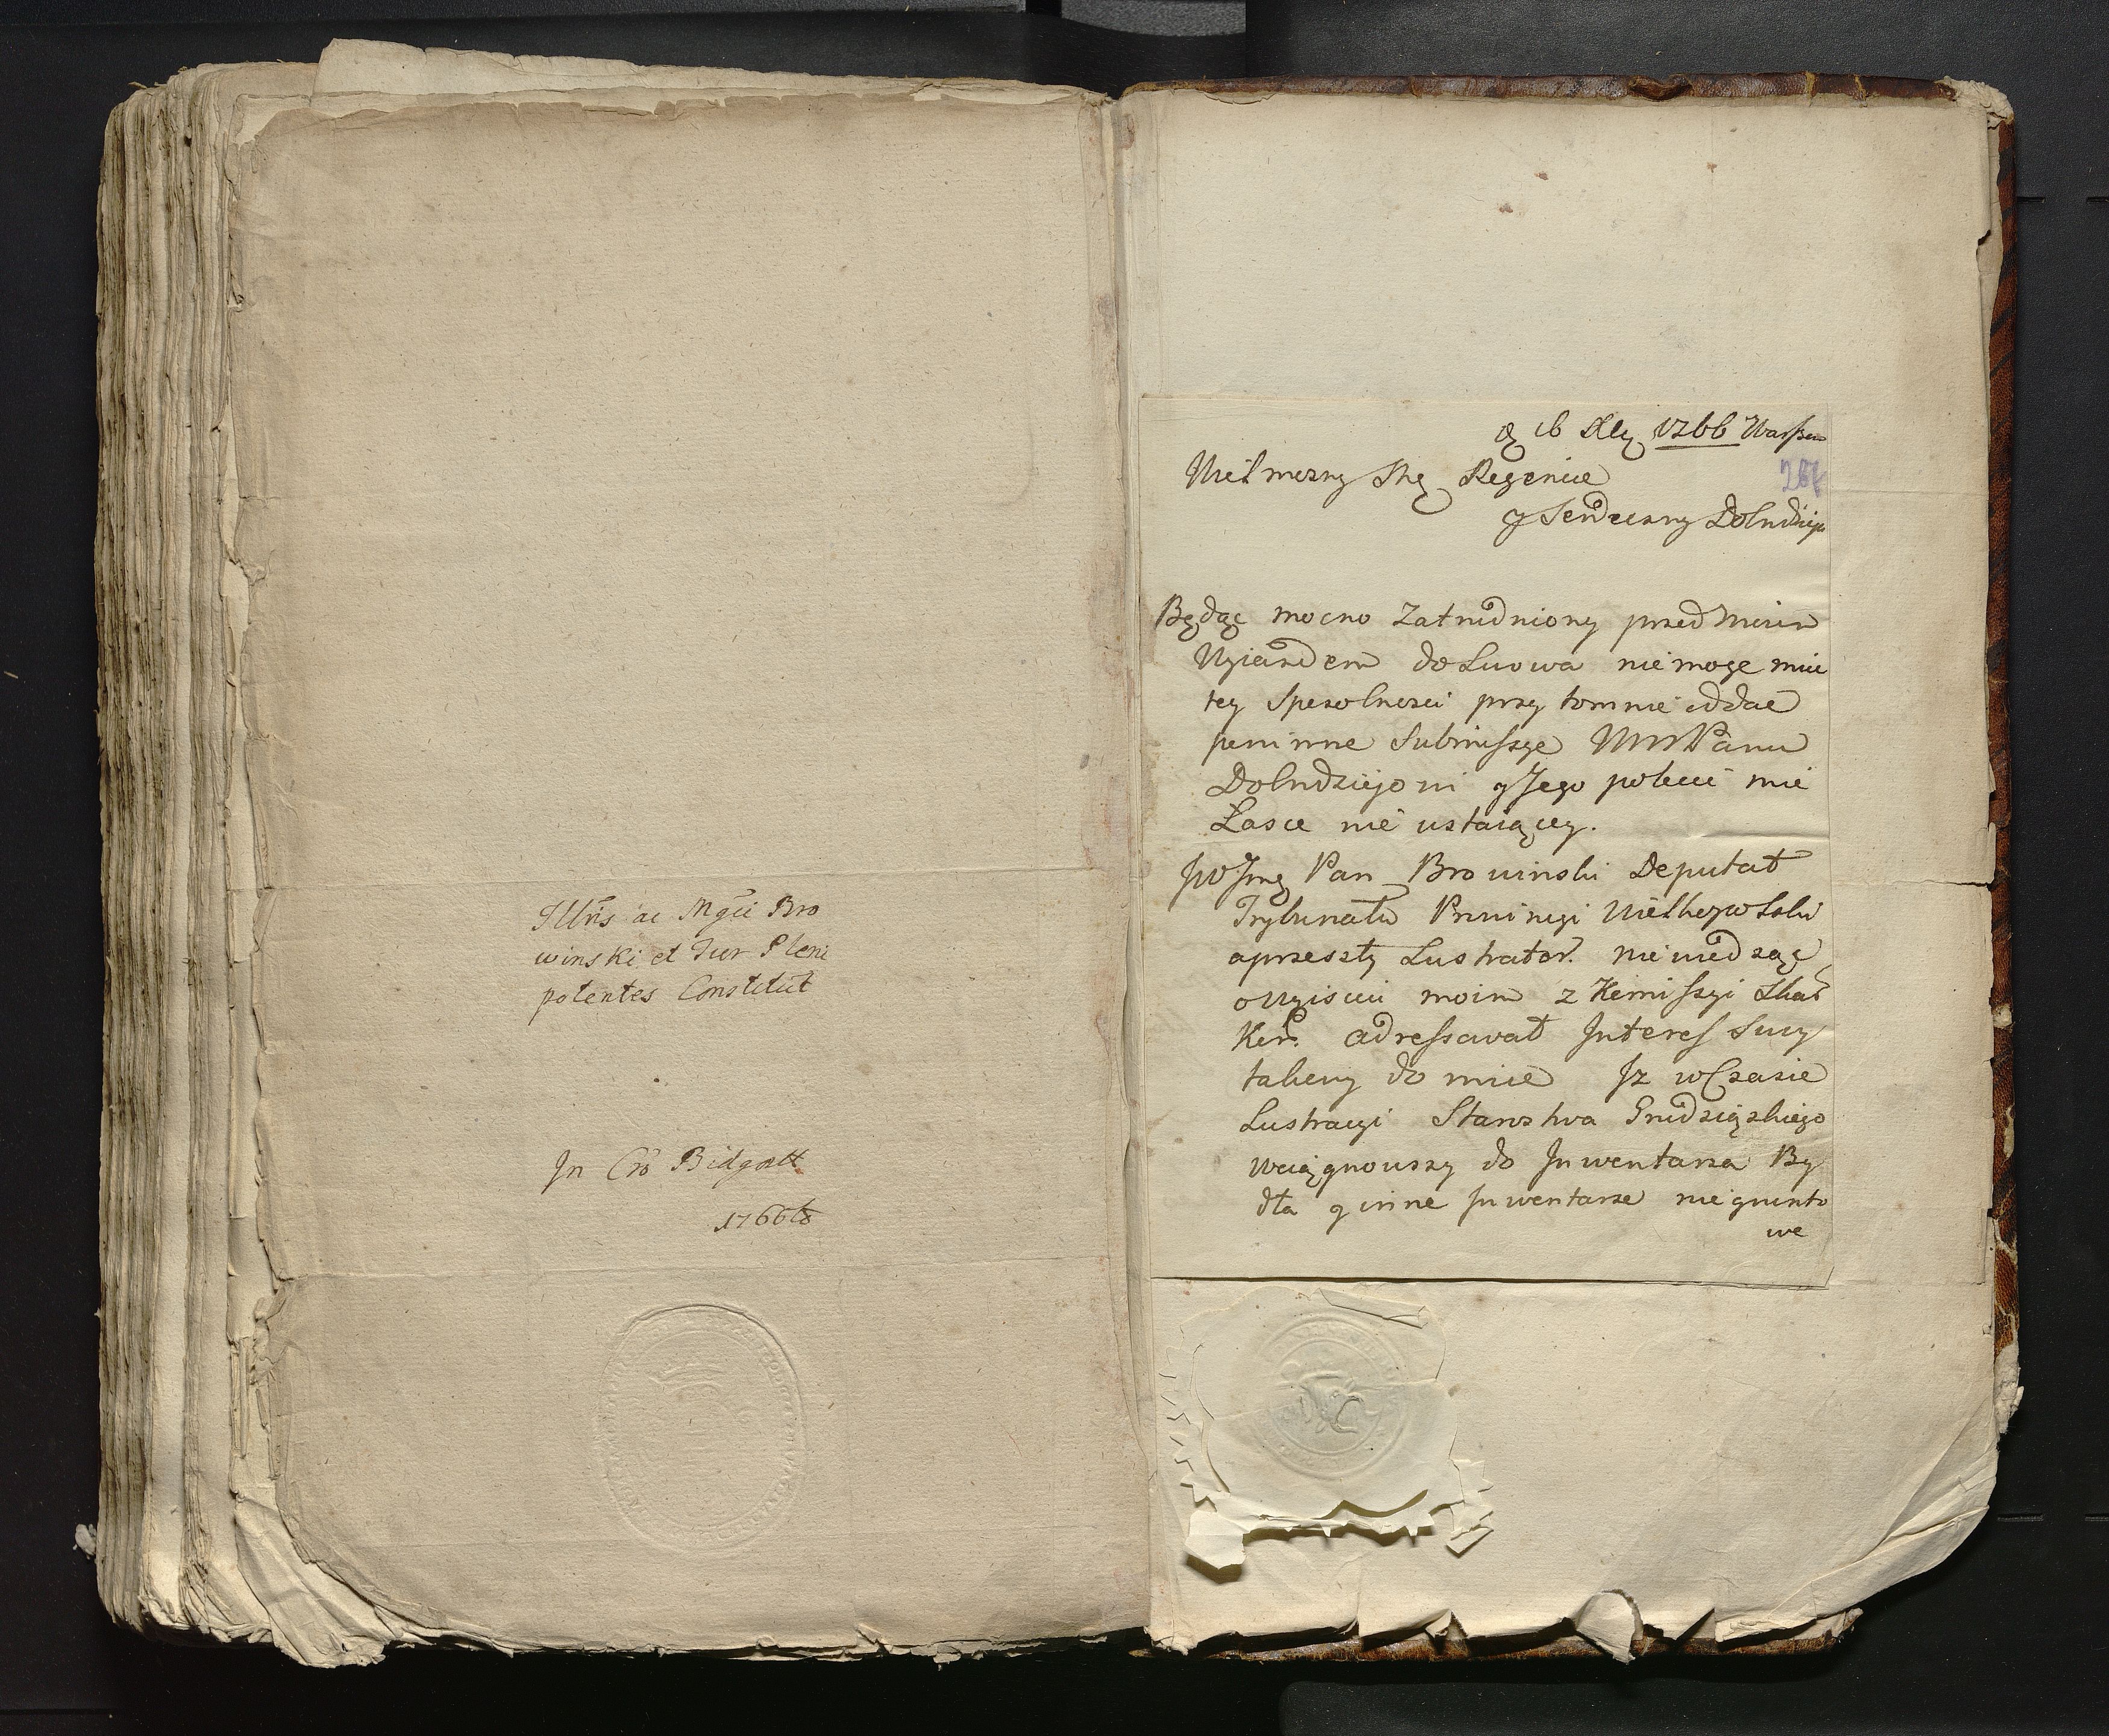 Illris ac Mgci Bro
winski et Iur Pleni
potentes Constitut
In Cro Bidgost
1766to
16 1766 Warszaw
Wielmozny Regencie
y Serdeczny Dobrodzieju
Będąc mocno Zatrudniony przed Moim
Wyiazdem do Lwowa nie moge miec
tey sposolnosci przytomnie oddac
powinne Submissye WmPanu
Dobrodziejowi y Jego polecic mie
Łasce nie ustaiącey.
JWJmę Pan Browinski Deputat
Trybunału Prowincyi Wielkopolski
a przeszły Lustrator. nie wiedząc
o Wyisciu moim z Komissyi Skar
Kor. adressował Interess Swoy
takowy do mnie Jz w Czasie
Lustracyi Starostwa Grudziązkiego
Wciągnowszy do Inwentarza By
dła y inne Inwentarze nie grunto
we